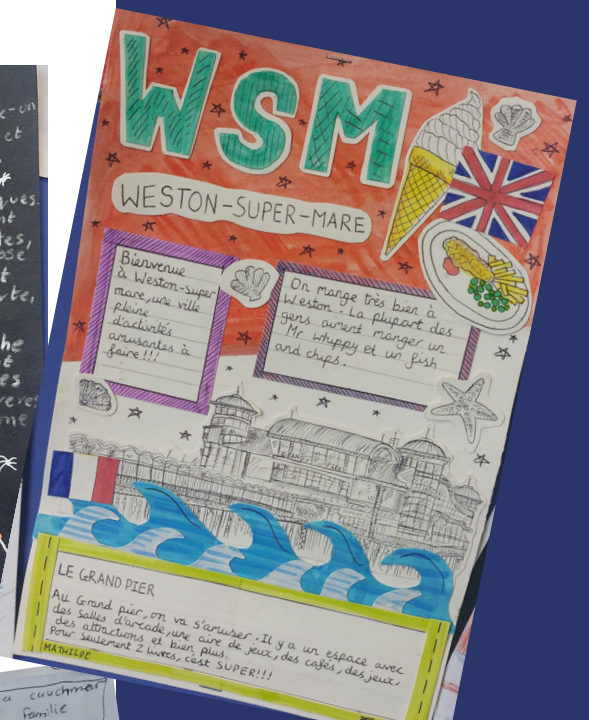 WSM
WESTON-SUPER-MARE
Bienvenue
à Weston-Super
mare, une ville
pleine
d'activités
amusantes à
faire!!!
On mange très bien à
Weston. La plupart des
gens aiment manger un
Mr whippy et un fish
and chips.
GRAND PIER
LE GRAND PIER
Au Grand pier, on va s'amuser. Il y a un espace avec
des salles d'arcade, une aire de jeux, des cafés, des jeux,
des attractions et bien plus.
Pour seulement 2 livres, c'est SUPER!!!
MATHILDE
a cauchmar
familie